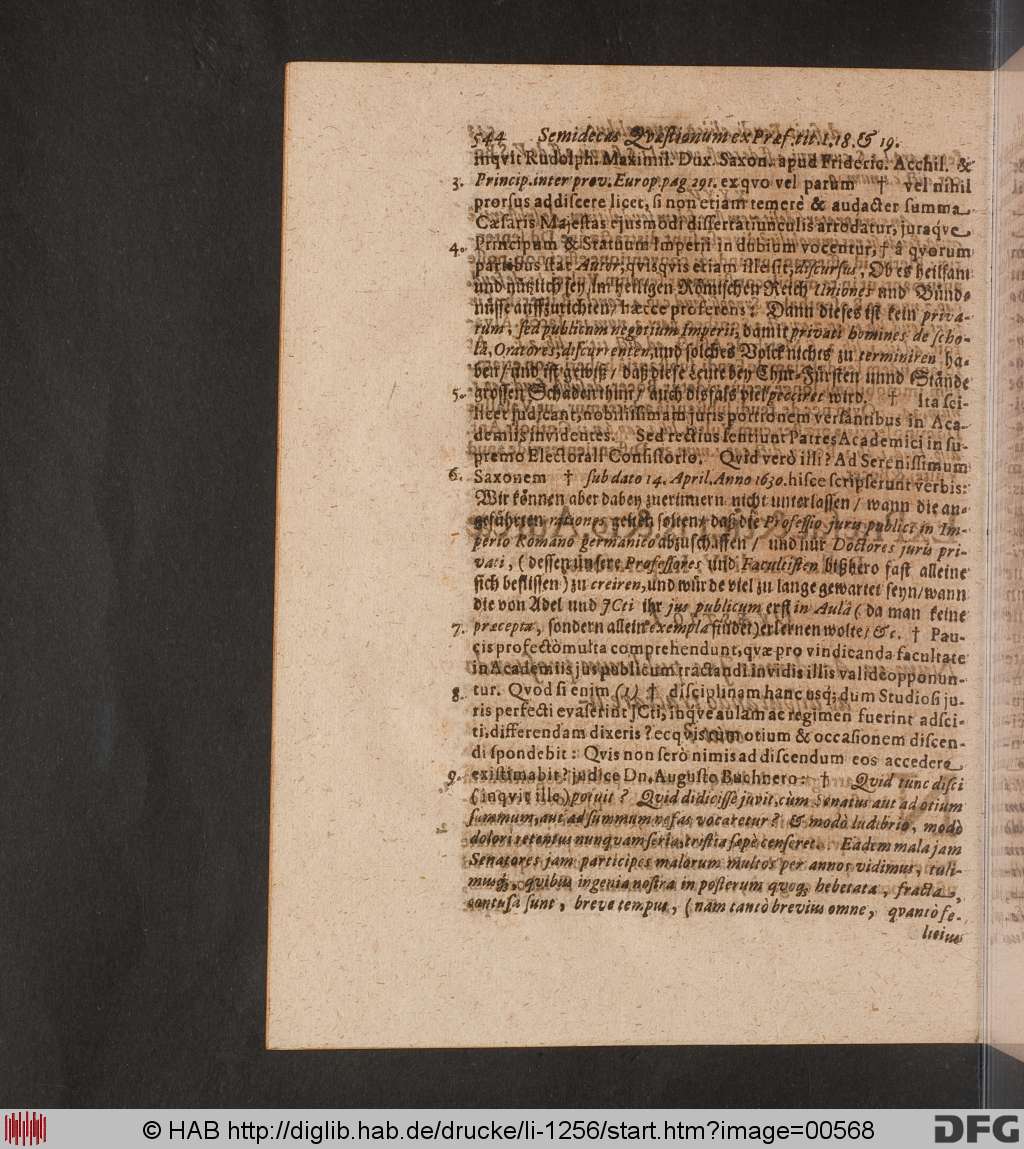 544 Semidecas Qvæstionum ex Præf. tit. 1. 18. & 19.
inqvit Rudolph. Maximil. Dux. Saxon. apud Frideric. Acchil. &
3. Princip. inter prov. Europ. pag 291. ex qvo vel parum † vel nihil
prorsus addiscere licet, si non etiam temerè & audacter summa
Cæsaris Majestas ejusmodi dissertatiunculis arrodatur, juraqve
4. Principum & Statuum Imperii in dubium vocentur, † â qvorum
partibus stat Autor, qvisqvis etiam ille sit, discursus, Ob es heilsam
und nützlich sey / im heiligen Römischen Reich Uniones und Bünd-
nüsse auffzurichten / hæcce proferens: Dann dieses ist kein priva-
tum, sed publicum negotium Imperii, damit privati homines, de scho-
lâ, Oratores, discurrenten, und solches Volck nichts zu terminiren ha-
ben / und ist gewiß / daß diese Leute den Chur-Fürsten unnd Stände
5. grossen Schaden thun / auch disfals viel pecciret wird. † Ita sci-
licet judicant, nobilissimam juris portionem versantibus in Aca-
demiis invidentes. Sed rectius sentiunt Patres Academici in su-
premo Electorali Consistorio. Qvid verò illi? Ad Serenissimum
6. Saxonem † sub dato 14. April. Anno 1630. hisce scripserunt verbis:
Wir können aber dabey zuerinnern nicht unterlassen / wann die an-
geführten rationes gelten solten / daß die Professio juris publici in Im-
perio Romano germanico abzuschaffen / und nur Doctores juris pri-
vati, (dessen unsere Professores und Facultisten bißhero fast alleine
sich beflissen) zu creiren, und würde viel zu lange gewartet seyn / wann
die von Adel und JCti ihr jus publicum erst in Aulâ (da man keine
7. præcepta, sondern allein exempla findet) erlernen wolte / &c. † Pau-
cis profectò multa comprehendunt, qvæ pro vindicanda facultate
in Academiis jus publicum tractandi invidis illis validè opponun-
8. tur. Qvod si enim (1) † disciplinam hanc usq; dum Studiosi ju-
ris perfecti evaserint JCti, inqve aulam ac regimen fuerint adsci-
ti, differendam dixeris? ecqvis cum otium & occasionem discen-
di spondebit: Qvis non serò nimis ad discendum eos accedere
9. existimabit? judice Dn. Augusto Buchnero: † Qvid tunc disci
(inqvit ille) potuit? Qvid didicisse juvit, cùm Senatus aut ad otium
summum, aut ad summum nefas vocaretur? & modò ludibrio, modò
dolori retentus nunquam seria, tristia sæpè censeret. Eadem mala jam
Senatores jam participes malorum multos per annos vidimus, tuli-
musq;, qvibus ingenia nostra in posterum quoq; hebetata, fracta,
contusa sunt, breve tempus, (nam tantò brevius omne, qvantò fe-
licius
© HAB http://diglib.hab.de/drucke/li-1256/start.htm?image=00568
DFG